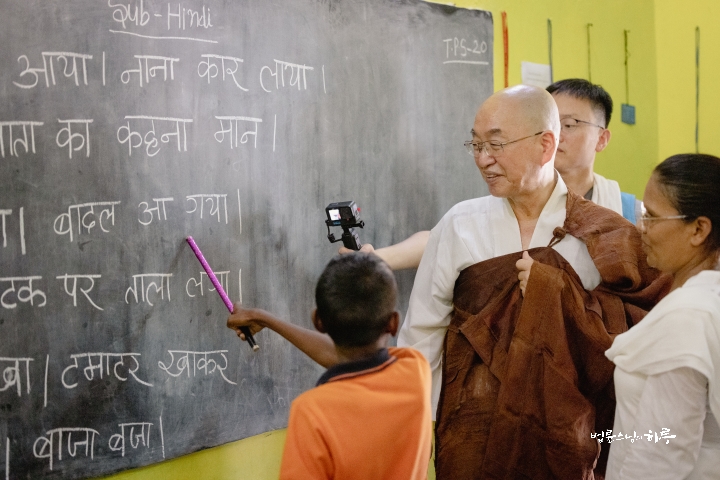 Sub-Hindi
T.P.S-20
आया। नाना कार लाया।
का कहना मान।
। बादल आ गया।
पर ताला लगा।
। टमाटर खाकर
। बाजा बजा।
법륜스님의 하루